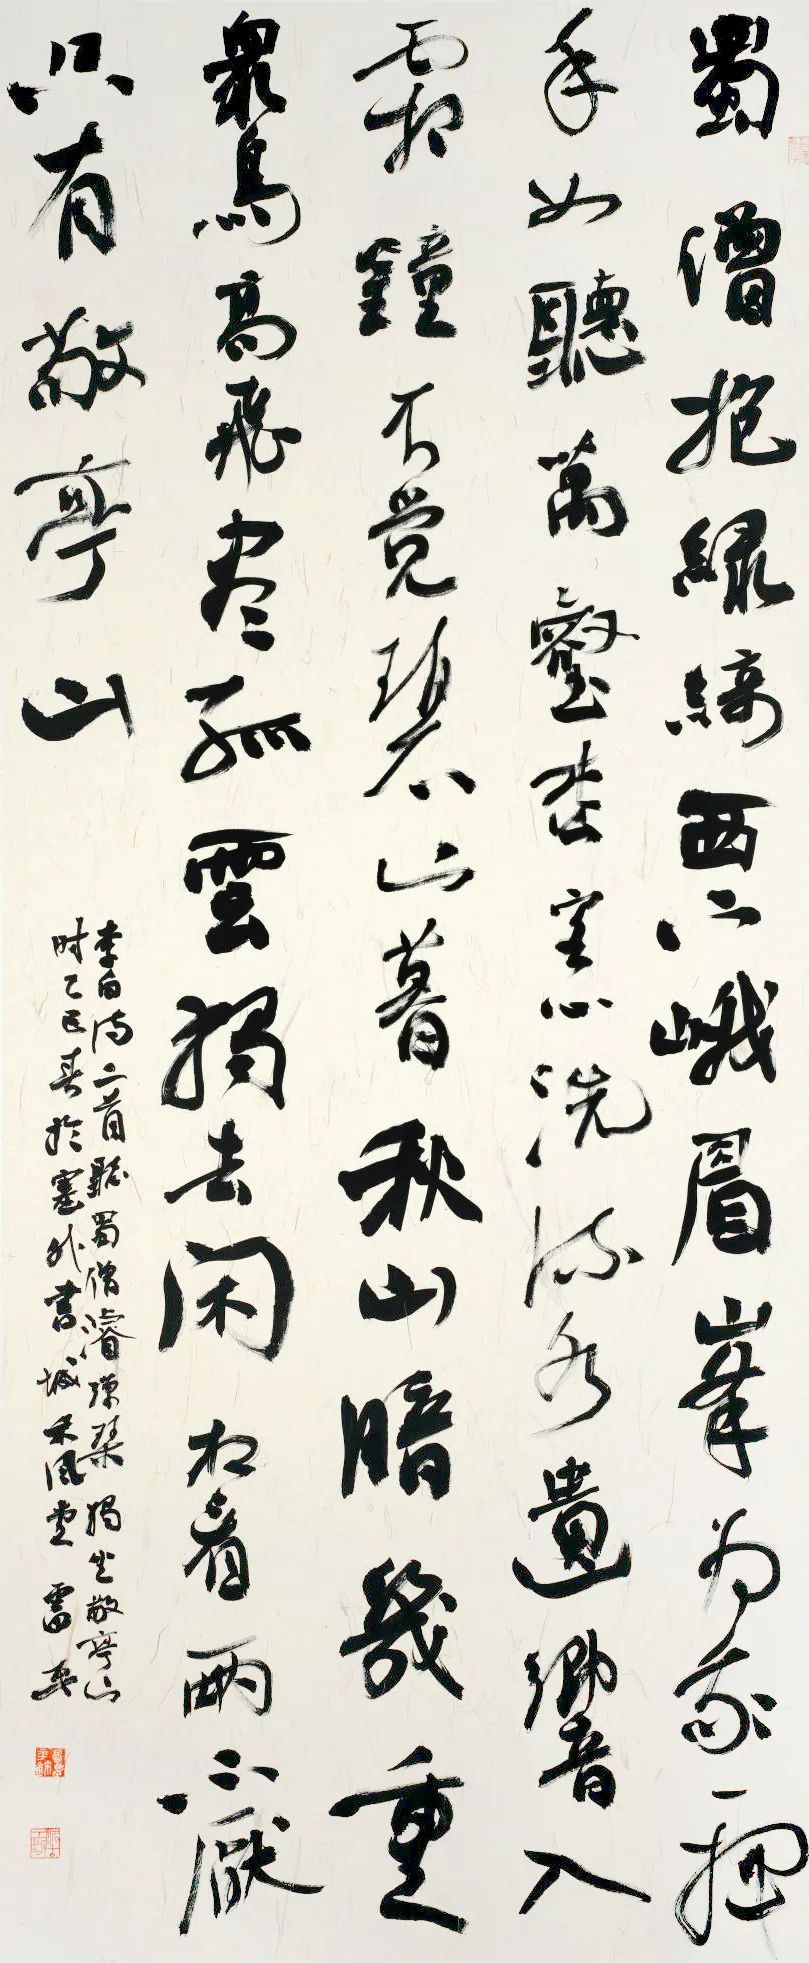 蜀僧抱綠綺西下峨眉峯为我一揮
手如聽萬壑松客心洗流水遺響入
霜鐘不覺碧山暮秋山暗幾重
眾鳥高飛尽孤雲獨去闲相看兩不厭
只有敬亭山
李白诗二首聽蜀僧濬弹琴獨坐敬亭山
时乙巳春於塞外書城禾风堂雷